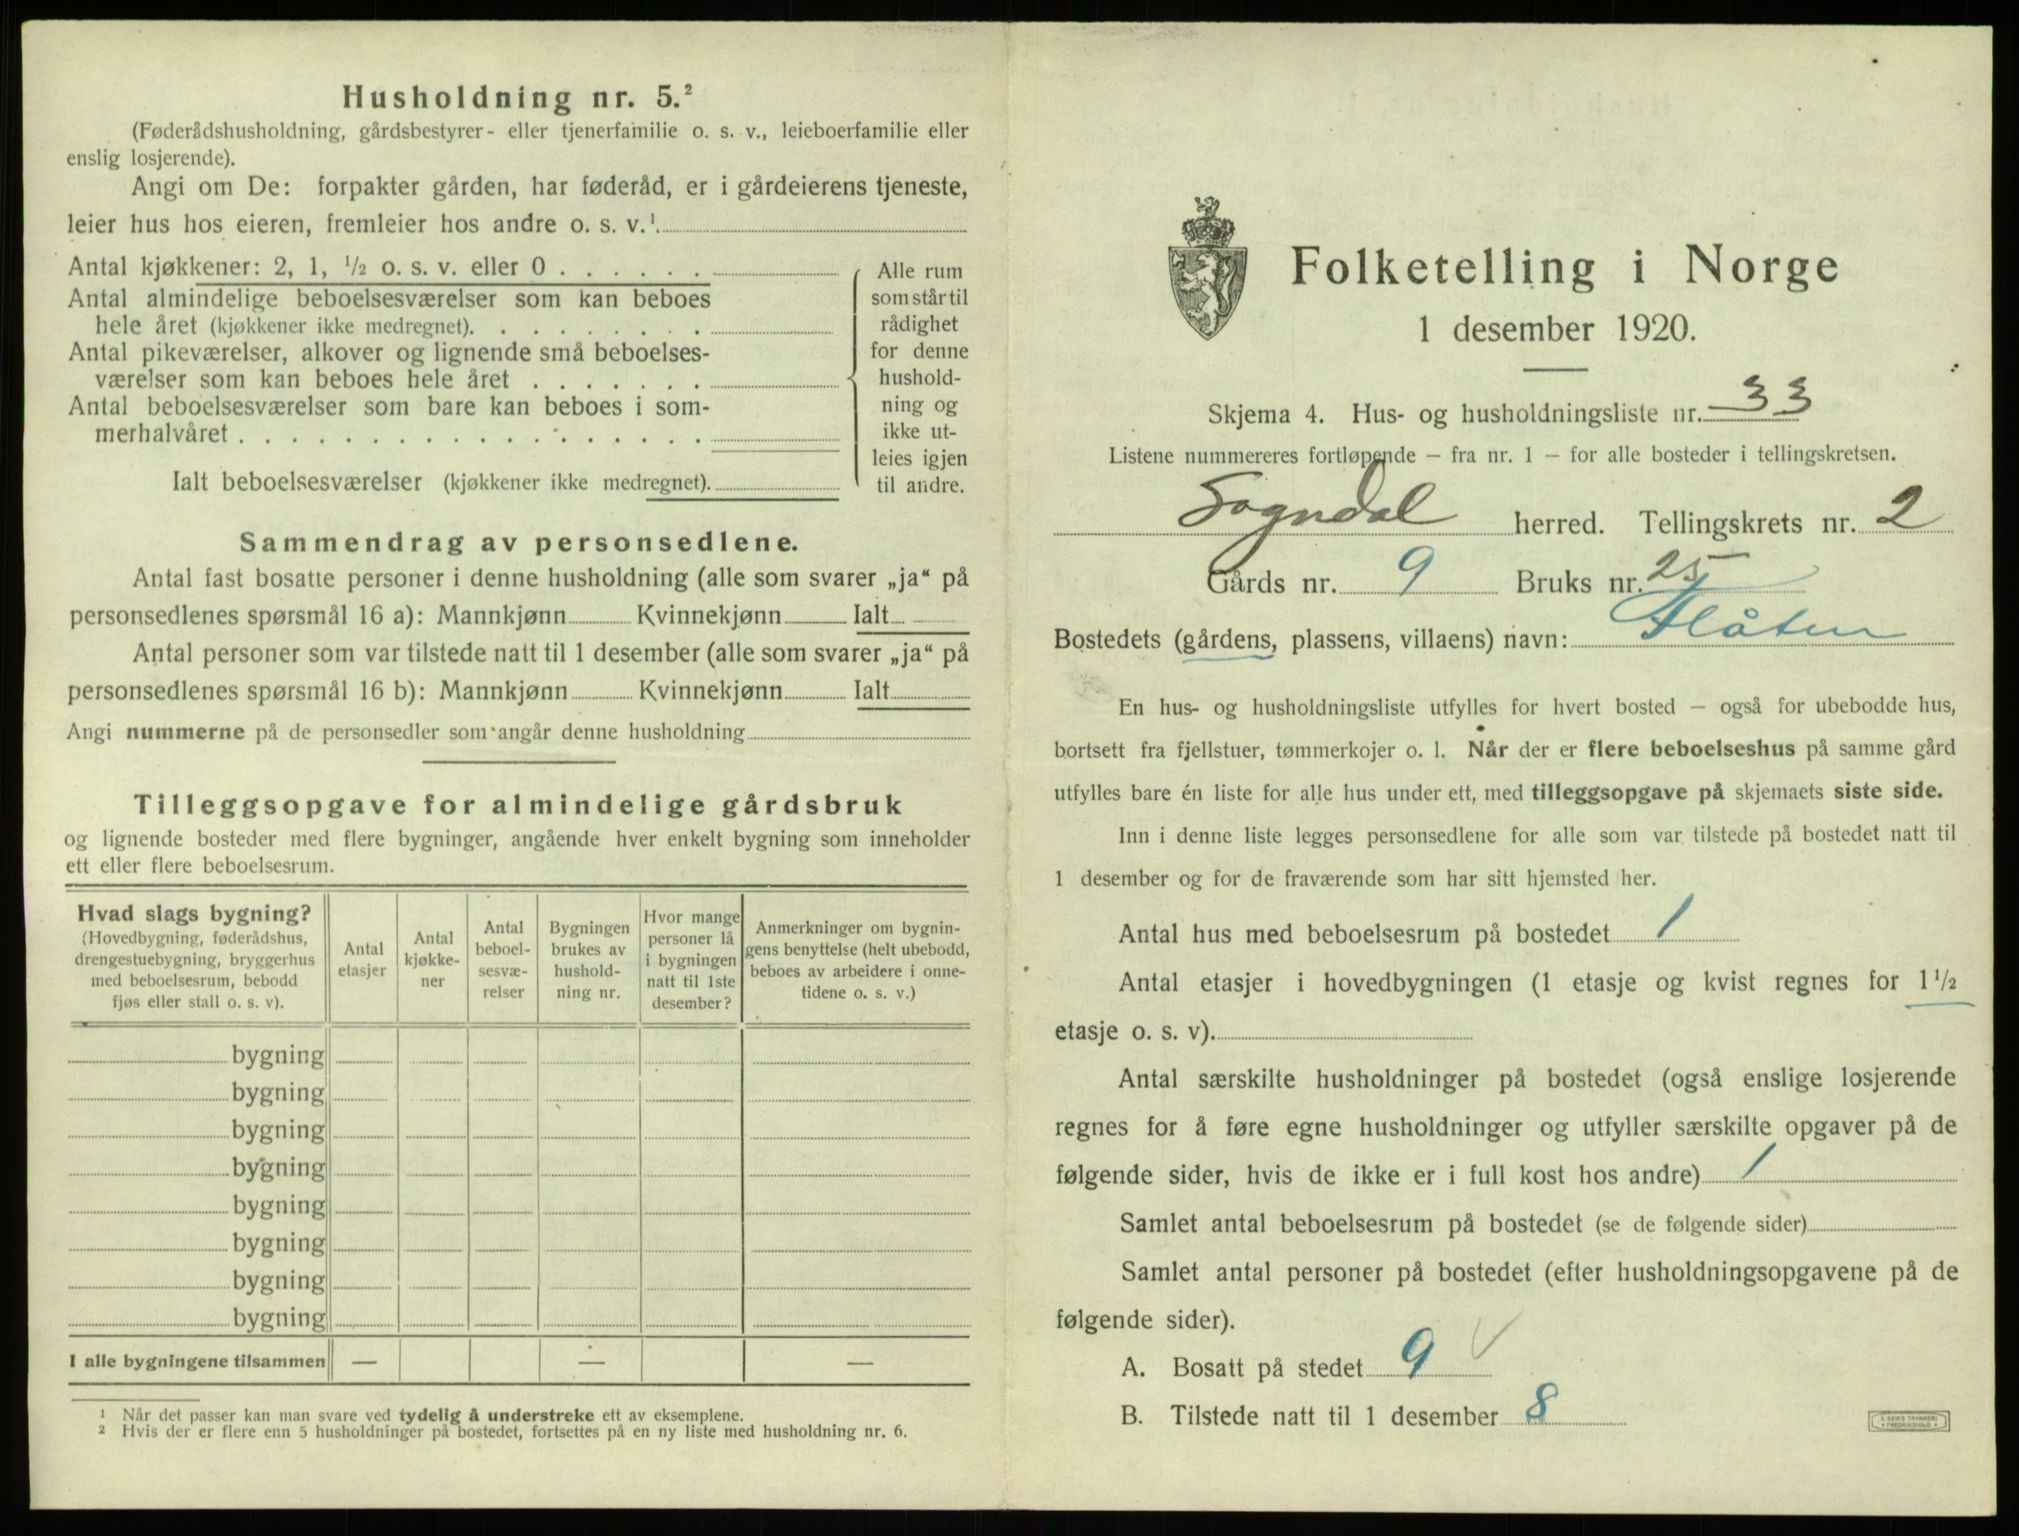 Husholdning nr. 5.²
(Føderådshusholdning, gårdsbestyrer- eller tjenerfamilie o. s. v., leieboerfamilie eller
enslig losjerende).
Angi om De: forpakter gården, har føderåd, er i gårdeierens tjeneste,
leier hus hos eieren, fremleier hos andre o. s. v.¹
Antal kjøkkener: 2, 1, ½ o. s. v. eller 0
Antal almindelige beboelsesværelser som kan beboes
hele året (kjøkkener ikke medregnet)
Antal pikeværelser, alkover og lignende små beboelses-
værelser som kan beboes hele året
Antal beboelsesværelser som bare kan beboes i som-
merhalvåret
Ialt beboelsesværelser (kjøkkener ikke medregnet)
Alle rum
som står til
rådighet
for denne
hushold-
ning og
ikke ut-
leies igjen
til andre.
Sammendrag av personsedlene.
Antal fast bosatte personer i denne husholdning (alle som svarer „ja“ på
personsedlenes spørsmål 16 a): Mannkjønn Kvinnekjønn Ialt
Antal personer som var tilstede natt til 1 desember (alle som svarer „ja“ på
personsedlenes spørsmål 16 b): Mannkjønn Kvinnekjønn Ialt
Angi nummerne på de personsedler som angår denne husholdning
Tilleggsopgave for almindelige gårdsbruk
og lignende bosteder med flere bygninger, angående hver enkelt bygning som inneholder
ett eller flere beboelsesrum.
Hvad slags bygning?
(Hovedbygning, føderådshus,
drengestuebygning, bryggerhus
med beboelsesrum, bebodd
fjøs eller stall o. s. v).
Antal
etasjer
Antal
kjøkke-
ner
Antal
beboel-
sesvæ-
relser
Bygningen
brukes av
hushold-
ning nr.
Hvor mange
personer lå
i bygningen
natt til 1ste
desember?
Anmerkninger om bygnin-
gens benyttelse (helt ubebodd,
beboes av arbeidere i onne-
tidene o. s. v.)
bygning
bygning
bygning
bygning
bygning
bygning
bygning
bygning
I alle bygningene tilsammen — — —
¹ Når det passer kan man svare ved tydelig å understreke ett av eksemplene.
² Hvis der er flere enn 5 husholdninger på bostedet, fortsettes på en ny liste med husholdning nr. 6.
Folketelling i Norge
1 desember 1920.
Skjema 4. Hus- og husholdningsliste nr. 33
Listene nummereres fortløpende – fra nr. 1 – for alle bosteder i tellingskretsen.
Sogndal herred. Tellingskrets nr. 2
Gårds nr. 9 Bruks nr. 25
Bostedets (gårdens, plassens, villaens) navn: Flåten
En hus- og husholdningsliste utfylles for hvert bosted – også for ubebodde hus,
bortsett fra fjellstuer, tømmerkojer o. l. Når der er flere beboelseshus på samme gård
utfylles bare én liste for alle hus under ett, med tilleggsopgave på skjemaets siste side.
Inn i denne liste legges personsedlene for alle som var tilstede på bostedet natt til
1 desember og for de fraværende som har sitt hjemsted her.
Antal hus med beboelsesrum på bostedet 1
Antal etasjer i hovedbygningen (1 etasje og kvist regnes for 1½
etasje o. s. v).
Antal særskilte husholdninger på bostedet (også enslige losjerende
regnes for å føre egne husholdninger og utfyller særskilte opgaver på de
følgende sider, hvis de ikke er i full kost hos andre) 1
Samlet antal beboelsesrum på bostedet (se de følgende sider)
Samlet antal personer på bostedet (efter husholdningsopgavene på de
følgende sider).
A. Bosatt på stedet 9
B. Tilstede natt til 1 desember 8